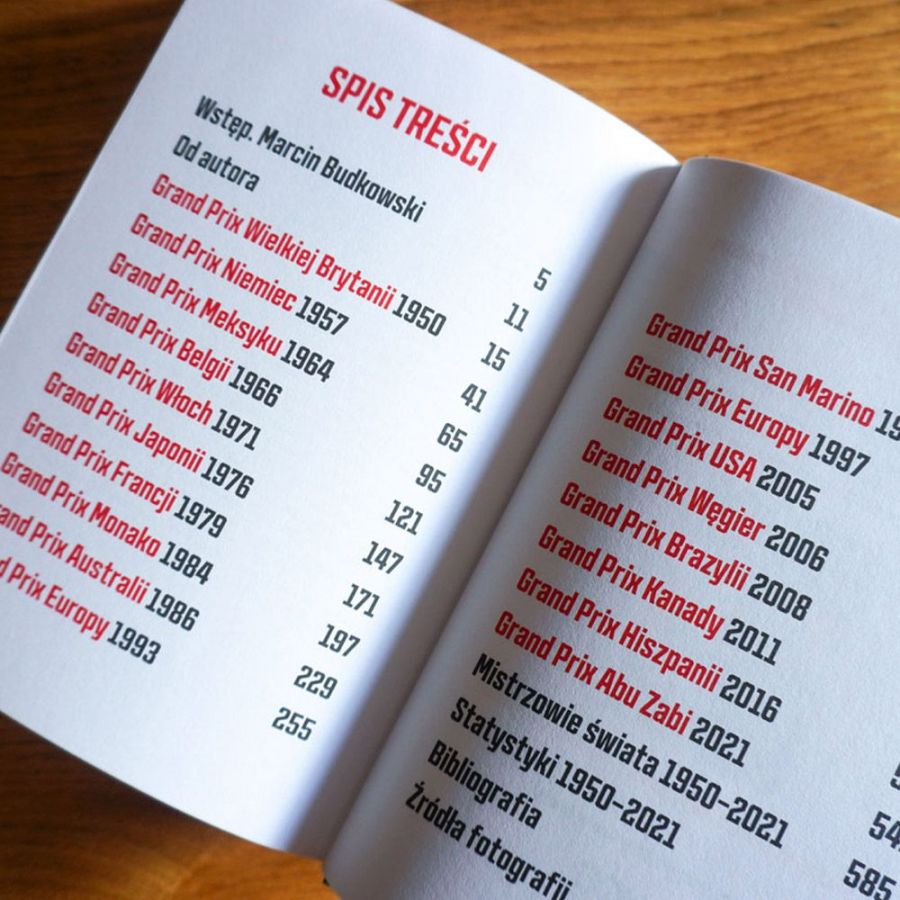 SPIS TREŚCI
Wstęp. Marcin Budkowski 5
Od autora 11
Grand Prix Wielkiej Brytanii 1950 15
Grand Prix Niemiec 1957 41
Grand Prix Meksyku 1964 65
Grand Prix Belgii 1966 95
Grand Prix Włoch 1971 121
Grand Prix Japonii 1976 147
Grand Prix Francji 1979 171
Grand Prix Monako 1984 197
Grand Prix Australii 1986 229
Prix Europy 1993 255
Grand Prix San Marino
Grand Prix Europy 1997
Grand Prix USA 2005
Grand Prix Węgier 2006
Grand Prix Brazylii 2008
Grand Prix Kanady 2011
Grand Prix Hiszpanii 2016
Grand Prix Abu Zabi 2021
Mistrzowie świata 1950-2021 585
Statystyki 1950-2021
Bibliografia
Źródła fotografii